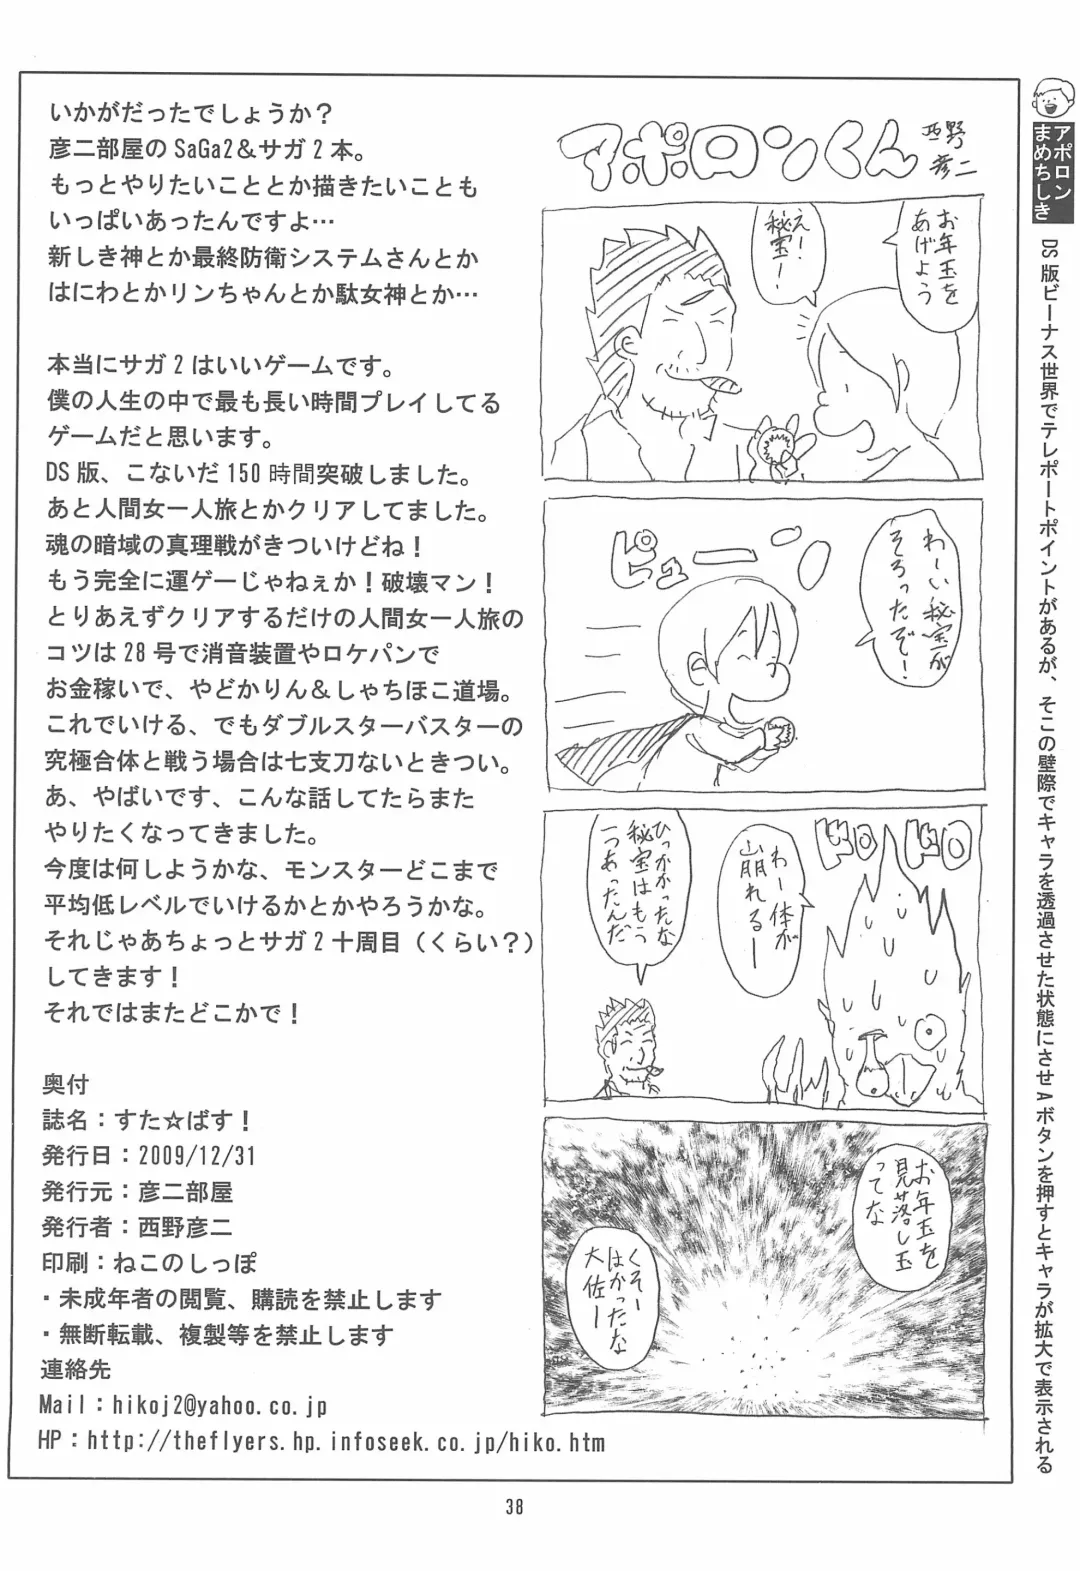 いかがだったでしょうか?
彦二部屋のSaGa2&サガ2本。
もっとやりたいこととか描きたいことも
いっぱいあったんですよ…
新しき神とか最終防衛システムさんとか
はにわとかリンちゃんとか駄女神とか…
本当にサガ2はいいゲームです。
僕の人生の中で最も長い時間プレイしてる
ゲームだと思います。
DS版、こないだ150時間突破しました。
あと人間女一人旅とかクリアしてました。
魂の暗域の真理戦がきついけどね!
もう完全に運ゲーじゃねぇか!破壊マン!
とりあえずクリアするだけの人間女一人旅の
コツは28号で消音装置やロケパンで
お金稼いで、やどかりん&しゃちほこ道場。
これでいける、でもダブルスターバスターの
究極合体と戦う場合は七支刀ないときつい。
あ、やばいです、こんな話してたらまた
やりたくなってきました。
今度は何しようかな、モンスターどこまで
平均低レベルでいけるかとかやろうかな。
それじゃあちょっとサガ2十周目(くらい?)
してきます!
それではまたどこかで!
奥付
誌名:すた☆ばす!
発行日:2009/12/31
発行元:彦二部屋
発行者:西野彦二
印刷:ねこのしっぽ
・未成年者の閲覧、購読を禁止します
・無断転載、複製等を禁止します
連絡先
Mail:hikoj2@yahoo.co.jp
HP:http://theflyers.hp.infoseek.co.jp/hiko.htm
アポロンくん
西野
彦二
お年玉を
あげよう
え!
秘宝!
わーい秘宝が
そろったぞ!
ピューン
ドロドロ
わー体が
崩れるー
ひっかかったな
秘宝はもう
1つあったんだ
お年玉を
見落し玉
ってな
くそー
はかったな
大佐ー
アポロン
まめちしき
DS版ビーナス世界でテレポートポイントがあるが、そこの壁際でキャラを透過させた状態にさせAボタンを押すとキャラが拡大で表示される
38